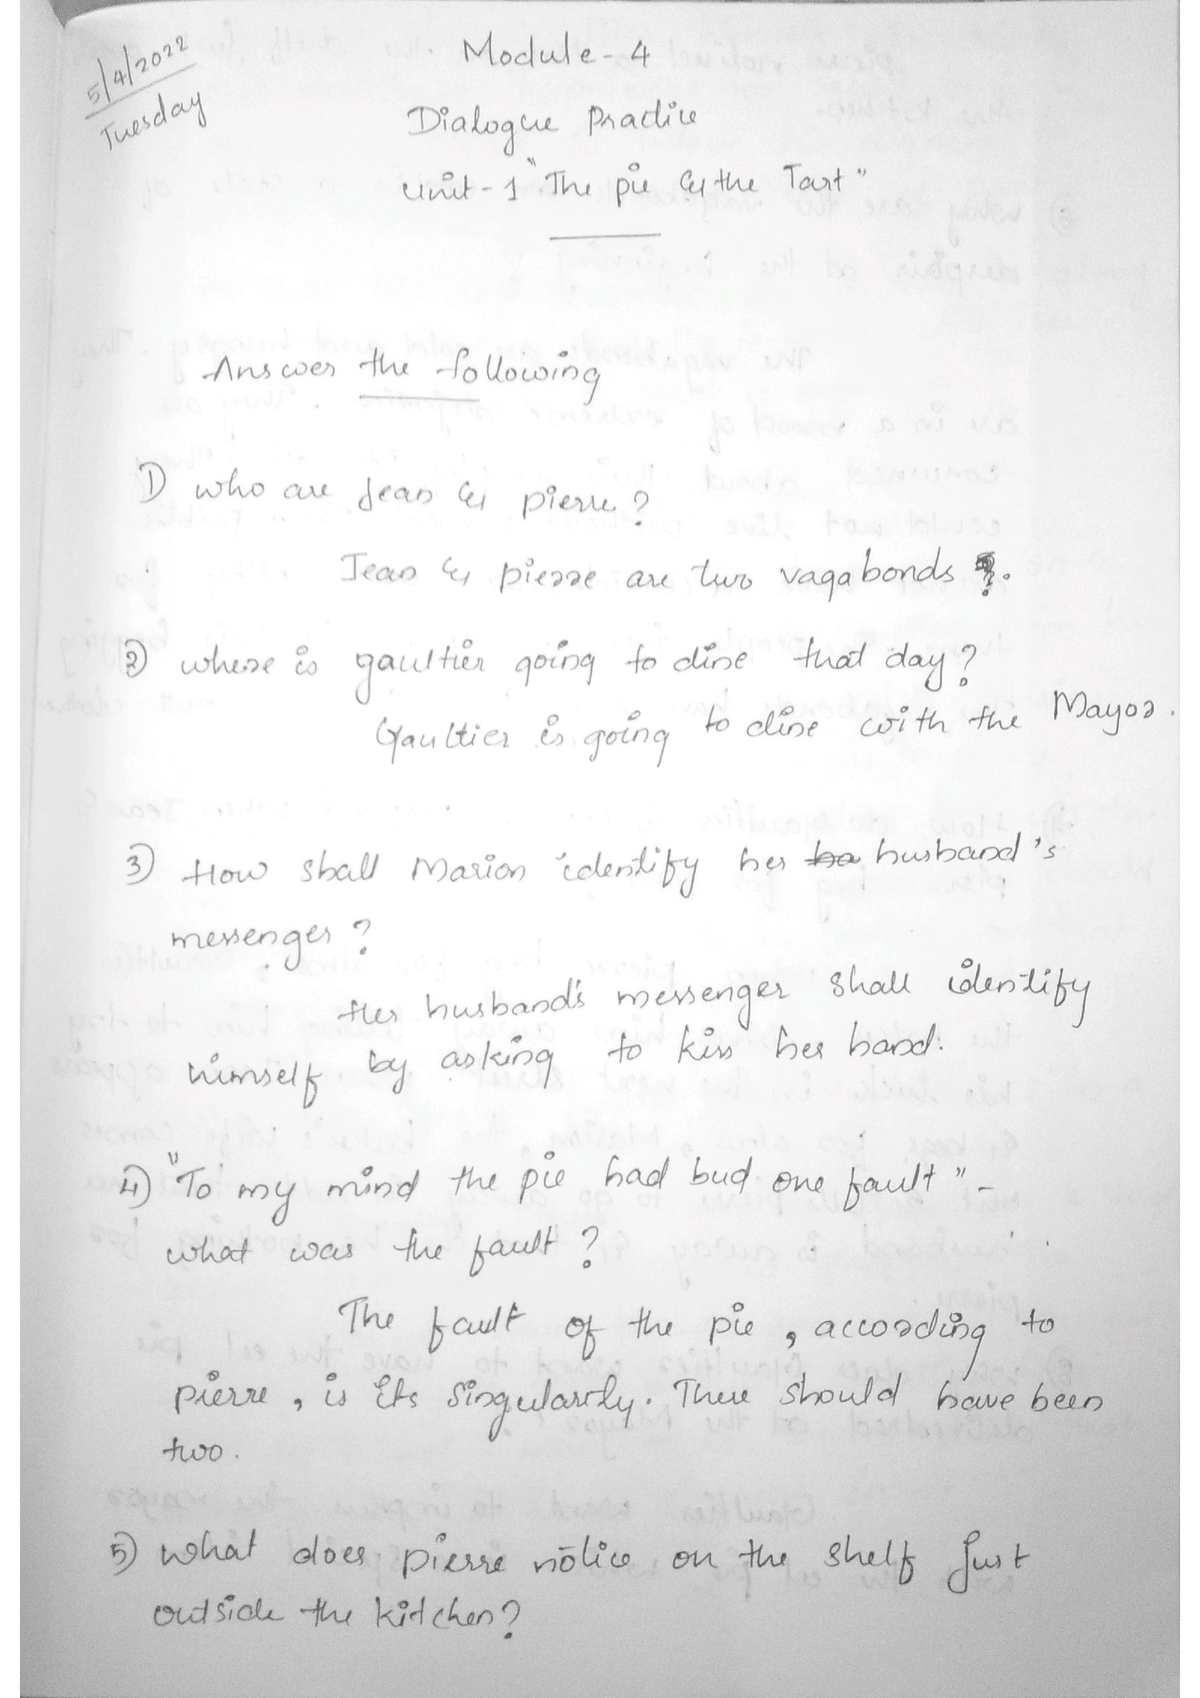 5/4/2022
Tuesday
Module-4
Dialogue Practice
unit-1 "The pie & the Tart"
Answer the following
1) who are Jean & pierre?
Jean & pierre are two vagabonds.
2) where is gaultier going to dine that day?
Gaultier is going to dine with the Mayor.
3) How shall Marion identify her ha husband's
messenger?
Her husband's messenger shall identify
himself by asking to kiss her hand.
4) "To my mind the pie had bud one fault" -
what was the fault?
The fault of the pie, according to
pierre, is its singularly. There should have been
two.
5) what does pierre notice on the shelf Just
outside the kitchen?